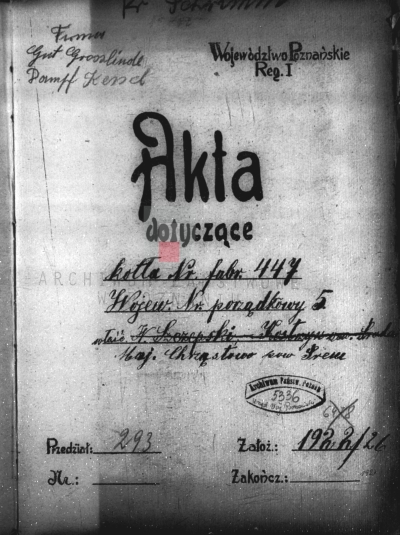 Firma
Gut Grosslinde
Dampf Kessel
Województwo Poznańskie
Reg. I
Akta
dotyczące
kotła Nr. fabr. 447
Wojew. Nr. porządkowy 5
Maj. Chrząstowo pow Śrem
Archiwum Państw. Poznań
5336
Przedział: 293
Założ.: 1922/26
Nr.:
Zakończ.: